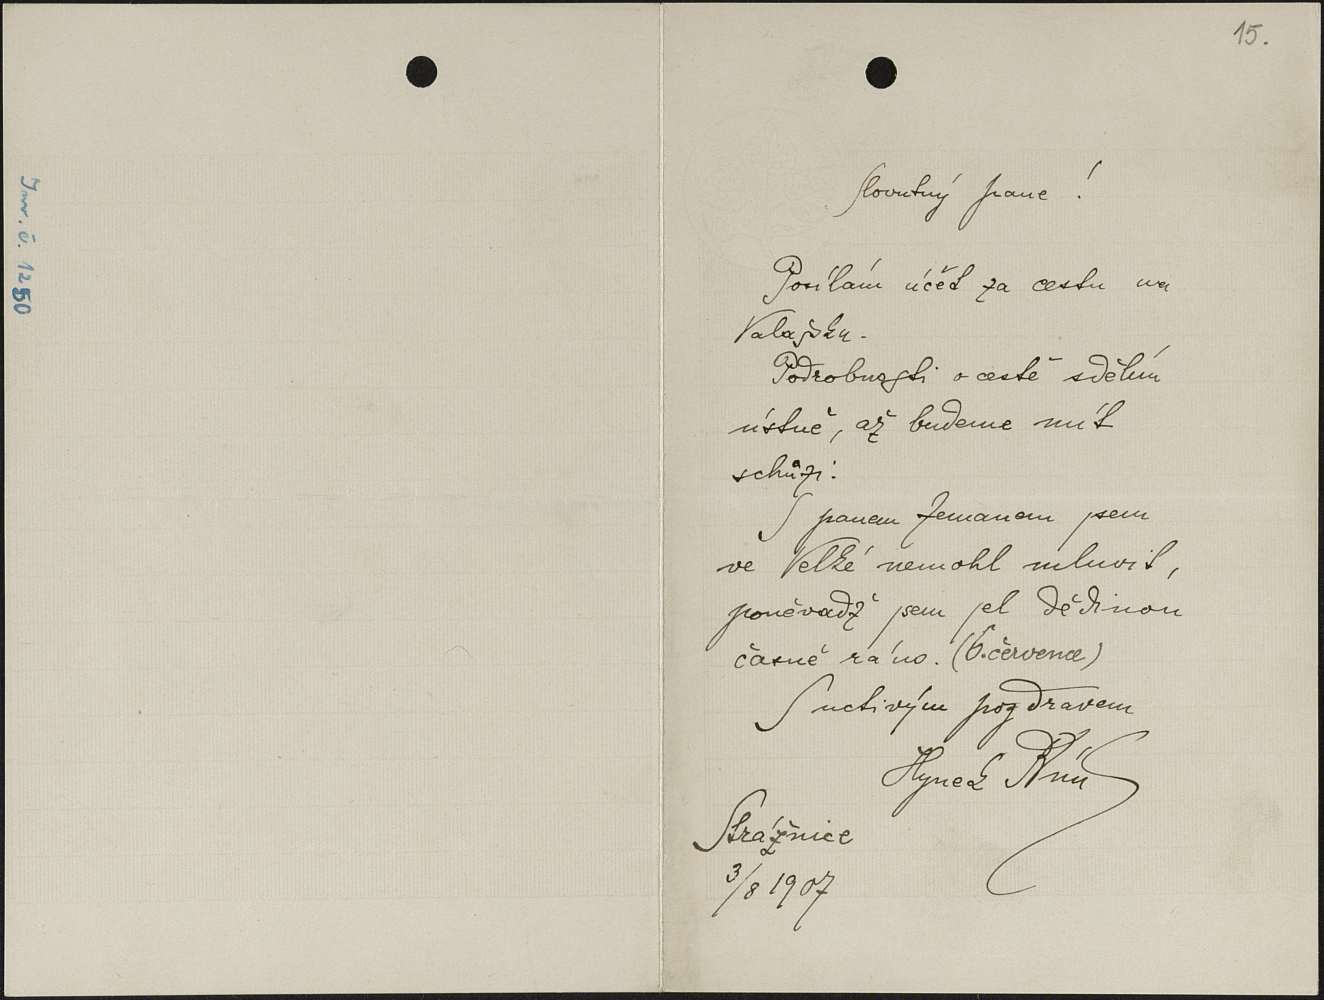 15.
Inv. č. 1250
Slovutný pane!
Posílám účet za cestu na
Valašsku.
Podrobnosti o cestě sdělím
ústně, až budeme mít
schůzi.
S panem Zemanem jsem
ve Velké nemohl mluvit,
poněvadž jsem jel dědinou
časně ráno. (6. července)
S uctivým pozdravem
Hynek Bím
Strážnice
3/8 1907